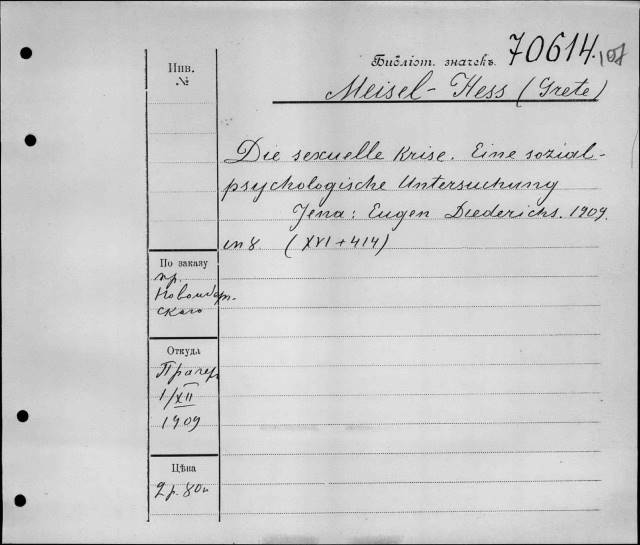 Библіот. значекъ. 70614. 107
Meisel-Hess (Grete)
Инв.
№
Die sexuelle Krise. Eine sozial-
psychologische Untersuchung
Jena: Eugen Diederichs. 1909.
in 8. (XVI+414)
По заказу
пр.
Новомбер-
скаго
Откуда
Прагеръ
1/XII
1909
Цѣна
2 р. 80 к